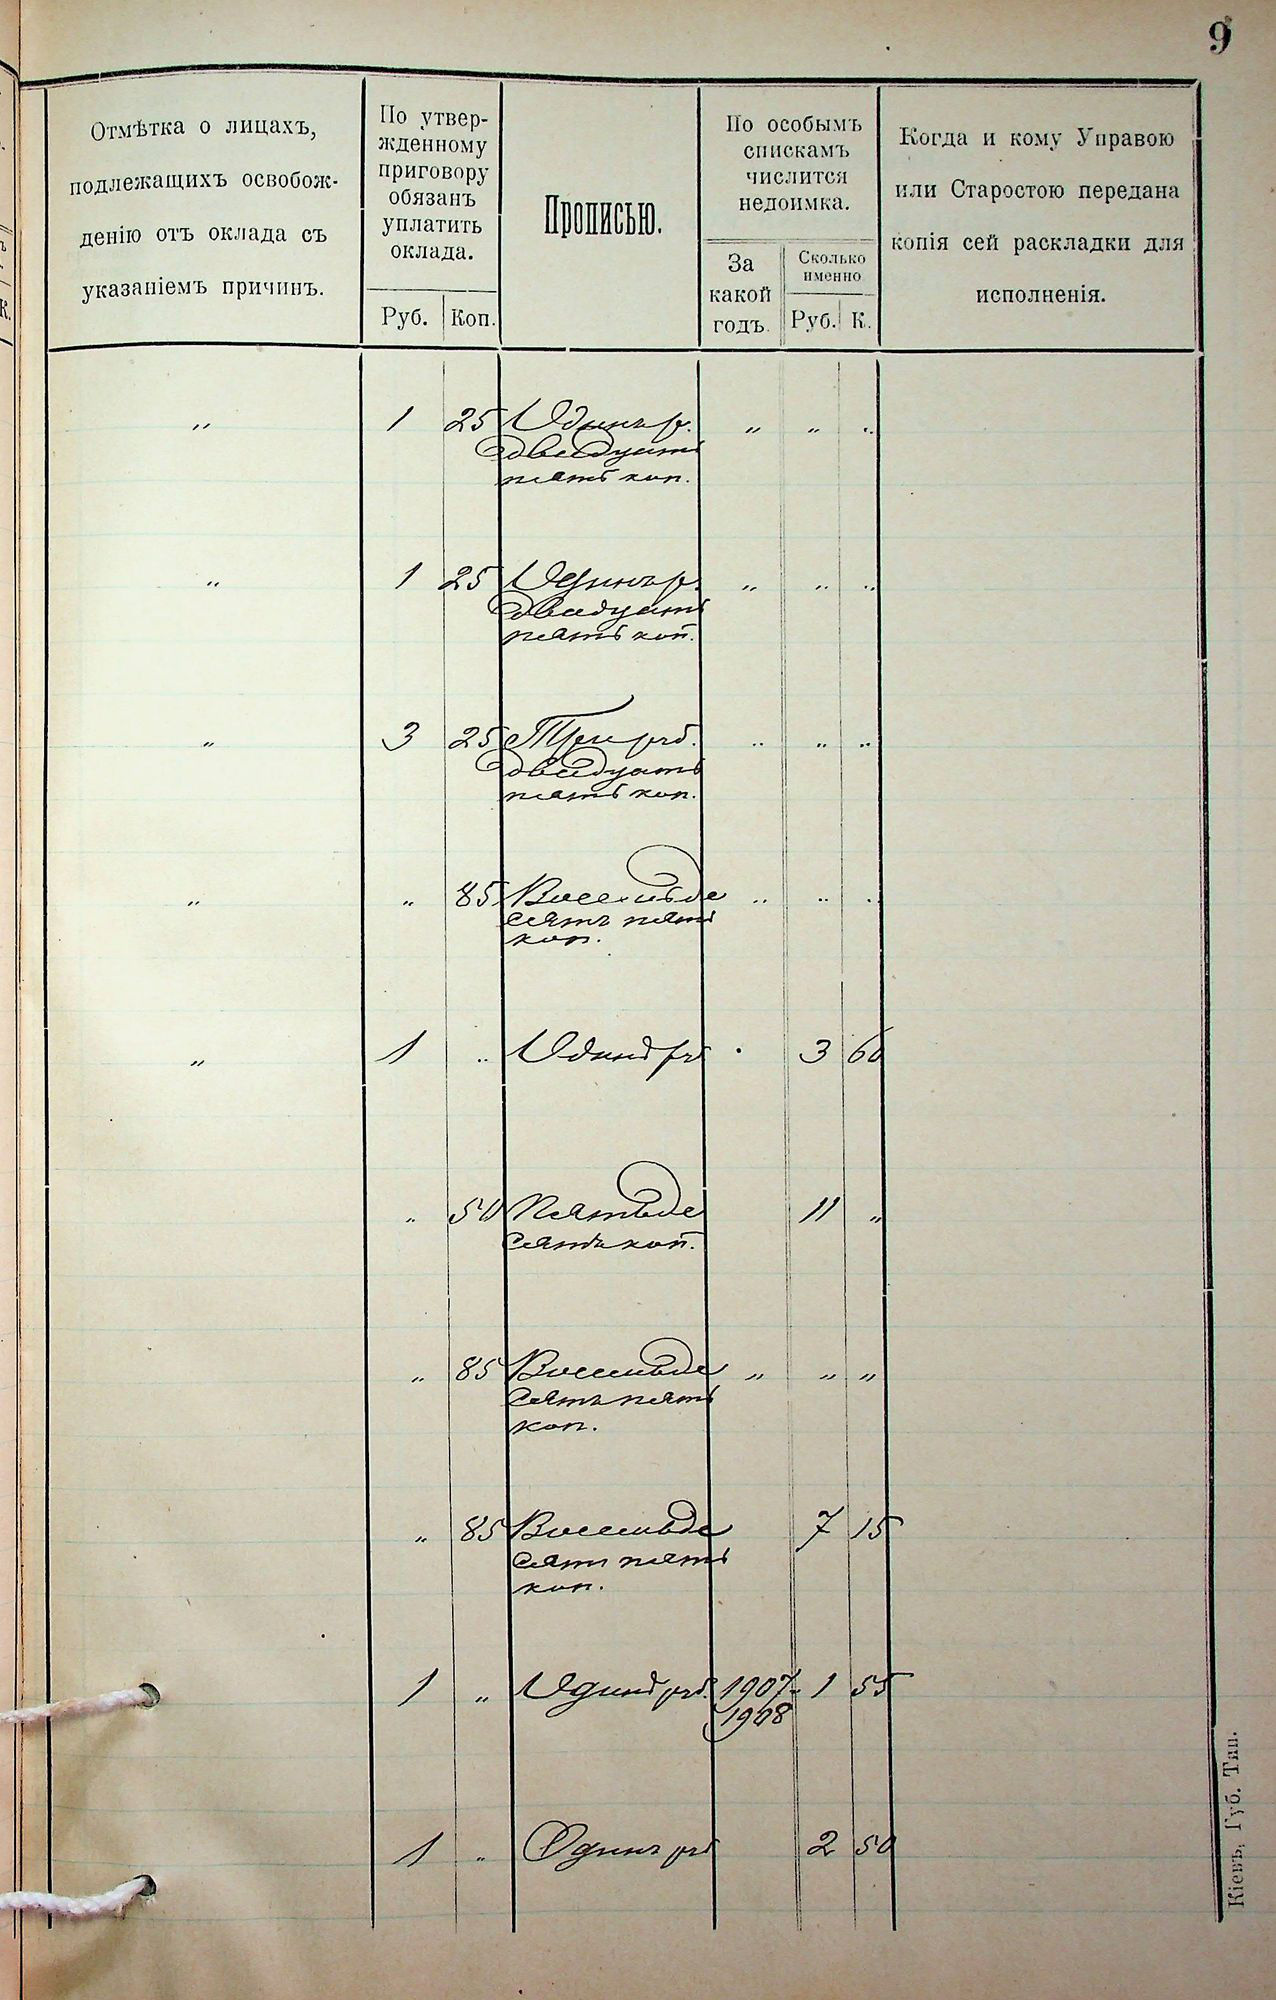 9
Отмѣтка о лицахъ,
подлежащихъ освобож-
денію отъ оклада съ
указаніемъ причинъ.
По утвер-
жденному
приговору
обязанъ
уплатить
оклада.
Руб. Коп.
Прописью.
По особымъ
спискамъ
числится
недоимка.
За
какой
годъ.
Сколько
именно
Руб. К.
Когда и кому Управою
или Старостою передана
копія сей раскладки для
исполненія.
К.
„ 1 25 Одинъ р. „ „ „
двадцать
пять коп.
„ 1 25 Одинъ р. „ „ „
двадцать
пять коп.
„ 3 25 Три руб. „ „ „
двадцать
пять коп.
„ „ 85 Восемьде „ „ „
сятъ пять
коп.
„ 1 „ Одинъ руб 3 60
„ 50 Пятьде 11 „
сятъ коп.
„ 85 Восемьде „ „ „
сятъ пять
коп.
„ 85 Восемьде 7 15
сятъ пять
коп.
1 „ Одинъ руб. 1907- 1 55
1908
1 „ Одинъ руб 2 50
Кіевъ, Губ. Тип.